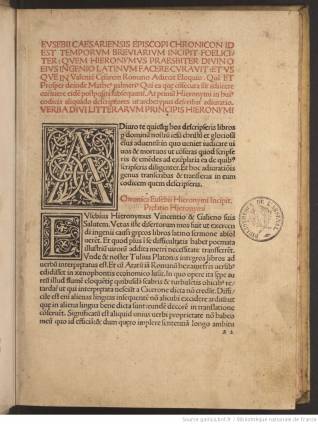 EVSEBII CAESARIENSIS EPISCOPI CHRONICON ID
EST TEMPORVM BREVIARIVM INCIPIT FOELICI
TER: QVEM HIERONYMVS PRAESBITER DIVINO
EIVS INGENIO LATINVM FACERE CVRAVIT: ET VS
QVE IN Valentē Cęsarem Romano Adiecit Eloquio. Qui ET
Prosper deinde Matheꝰ palmeriꝰ Qui ea quę
VERBA DIVI LITTERARVM PRINCIPIS HIERONYMI
ADiuro te quicūq; hos descripseris libros
p dominum nostrū iesū christū et gloriosū
eius aduentū: in quo ueniet iudicare ui
uos & mortuos ut cōferas quod scripse
ris & emēdes ad exēplaria ea de quibꝰ
scripseris diligenter. Et hoc adiurationis
genus transcribas & transferas in eum
codicem quem descripseris.
Chronica Eusebii Hieronymi Incipit.
Prefatio Hieronymi
EVsebius Hieronymus Vincentio & Galieno suis
Salutem. Vetus iste disertorum mos fuit ut exercen
di ingenii causa grecos libros latino sermone absol
uerēt. Et quod plus ī se difficultatis habet poemata
illustriū uirorū addita metri necessitate transferrēt.
Vnde & noster Tulius Platonis integros libros ad
uerbū interpretatus est. Et cū Aratū iā Romanū hexametris uersibus
edidisset in xenophontis economico lusit. In quo opere ita sepe au
reū illud flumē eloquētię quibusdā scabris & turbulētis obicibꝰ re
tardaꝰ ut qui interpretata nesciūt a Cicerone dicta nō credāt. Diffici
le est eni alienas linguas insequentē nō alicubi excedere: arduum ut
quę in aliena lingua bene dicta sunt: eundē decorē in translatione
cōseruēt. Significatū est aliquid unius uerbi proprietate: nō habeo
meū quo id efficiā: & dum quęro implere sentētiā longo ambitu
a 2
Source gallica.bnf.fr / Bibliothèque nationale de France